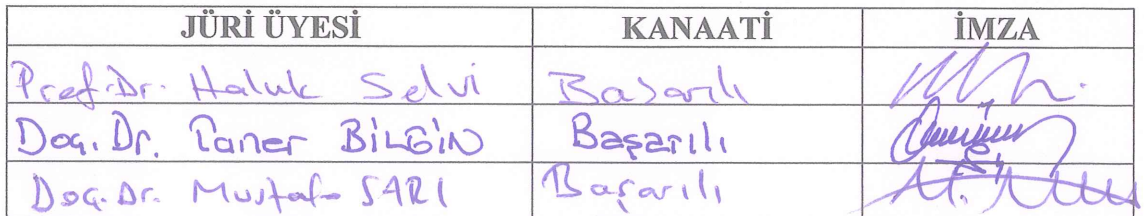 JÜRİ ÜYESİ KANAATİ İMZA
Prof. Dr. Haluk Selvi Başarılı
Doç. Dr. Taner BİLGİN Başarılı
Doç. Dr. Mustafa SARI Başarılı